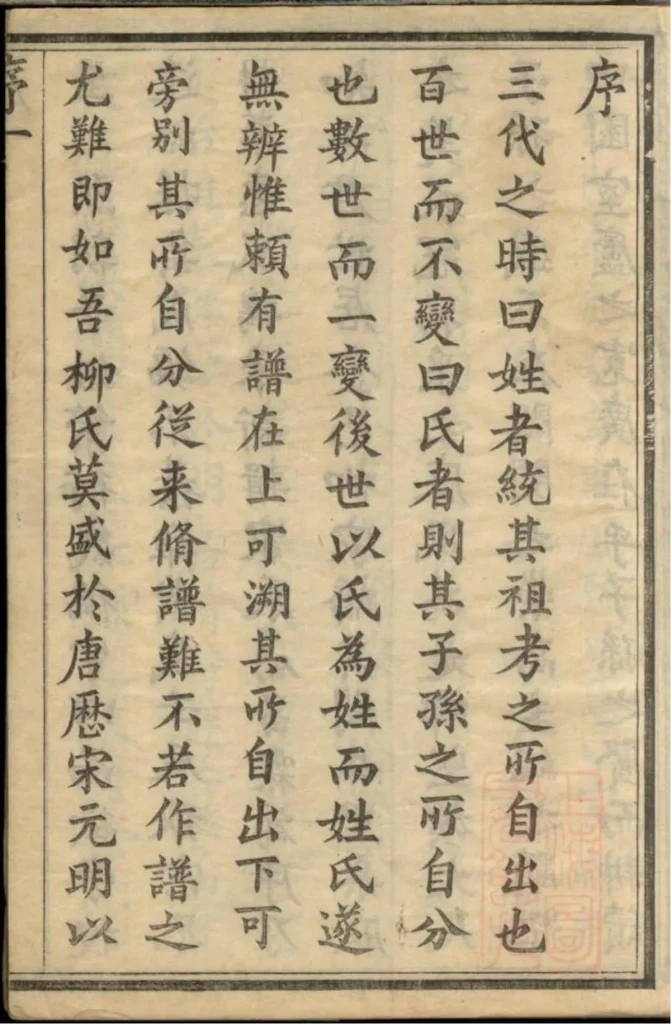 序
三代之時曰姓者統其祖考之所自出也
百世而不變曰氏者則其子孫之所自分
也數世而一變後世以氏為姓而姓氏遂
無辨惟賴有譜在上可溯其所自出下可
旁別其所自分從来脩譜難不若作譜之
尤難即如吾柳氏莫盛於唐歷宋元明以
序一